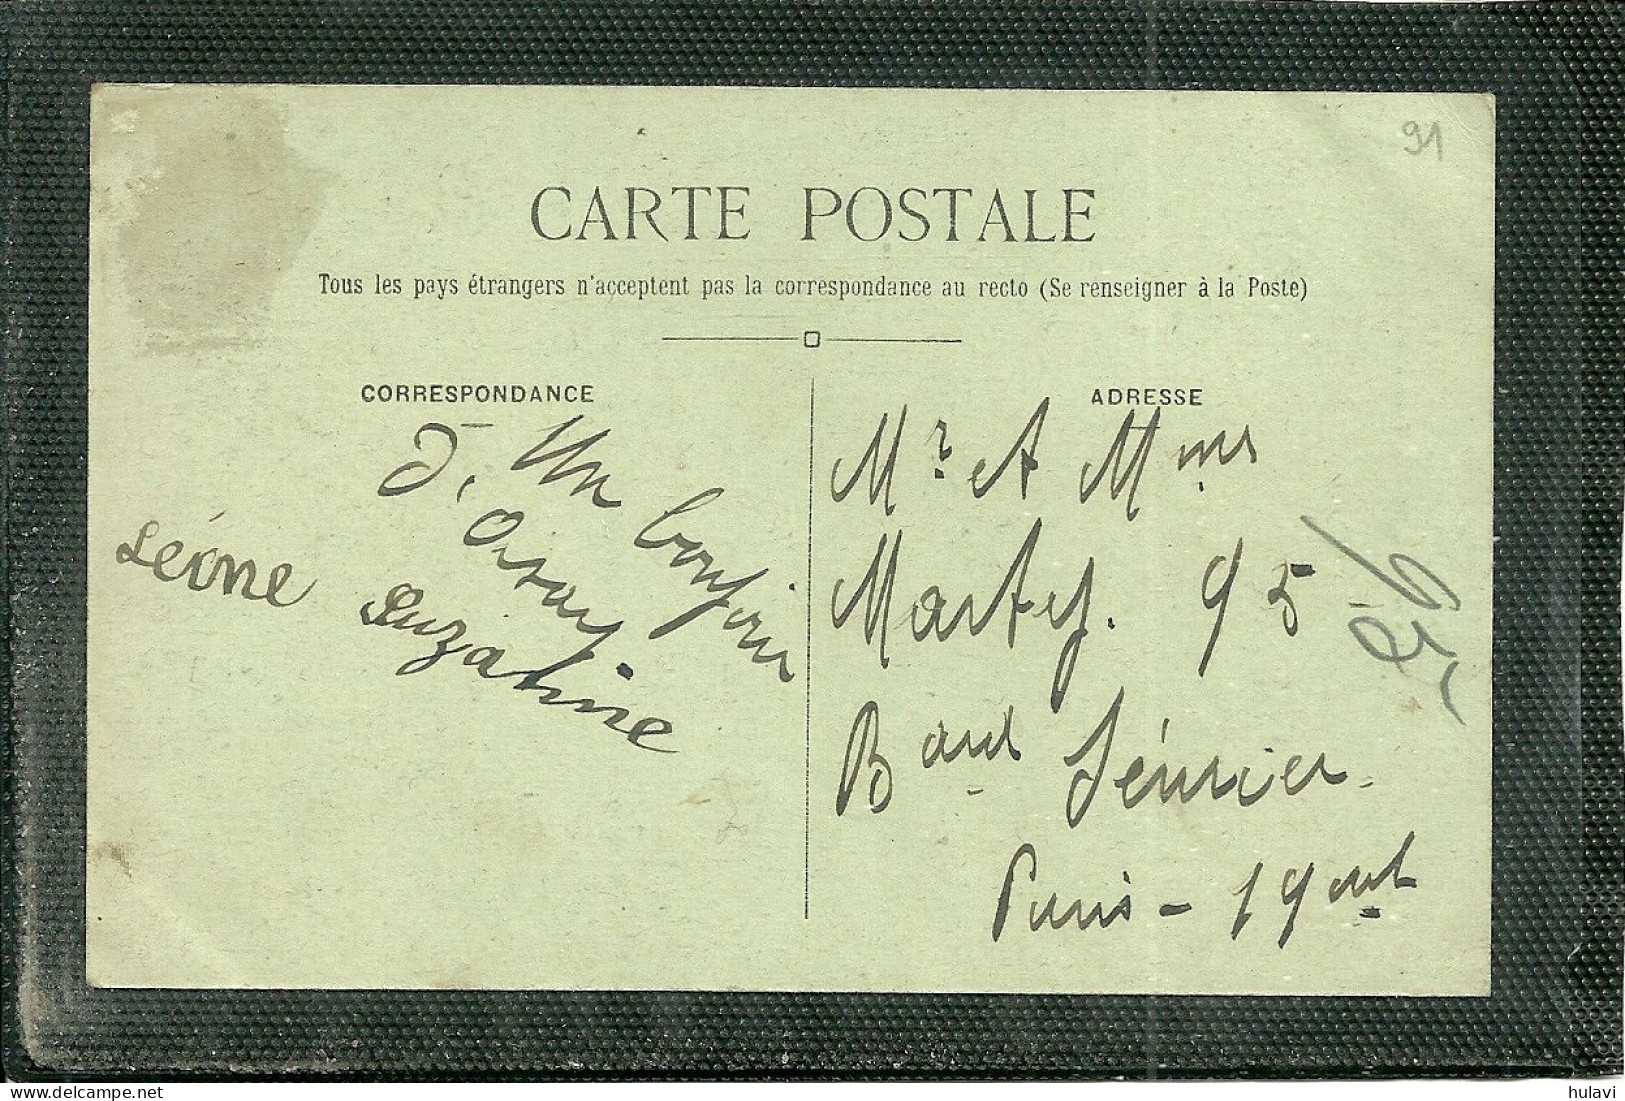 91
CARTE POSTALE
Tous les pays étrangers n'acceptent pas la correspondance au recto (Se renseigner à la Poste)
CORRESPONDANCE
Un bonjour
Léone Suzanne
ADRESSE
Mr et Mme
Martey. 95
Bard Sérurier
Paris - 19 ont
hulavi